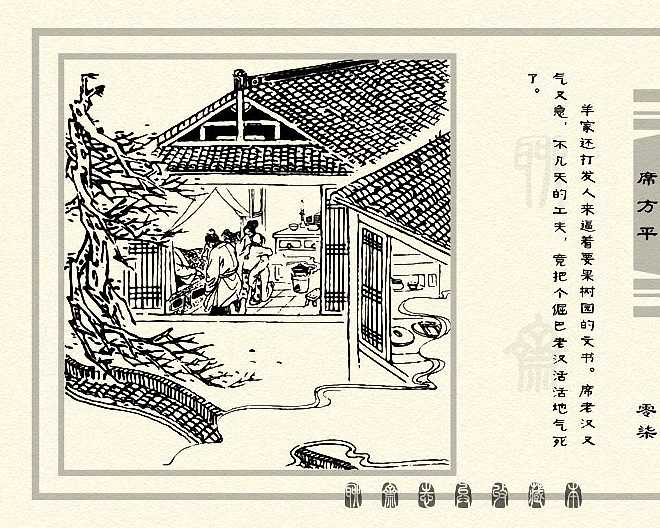 席方平
零柒
羊家还打发人来逼着要果树园的文书。席老汉又
气又急，不几天的工夫，竟把个倔巴老汉活活地气死
了。
聊斋
聊斋志异收藏本